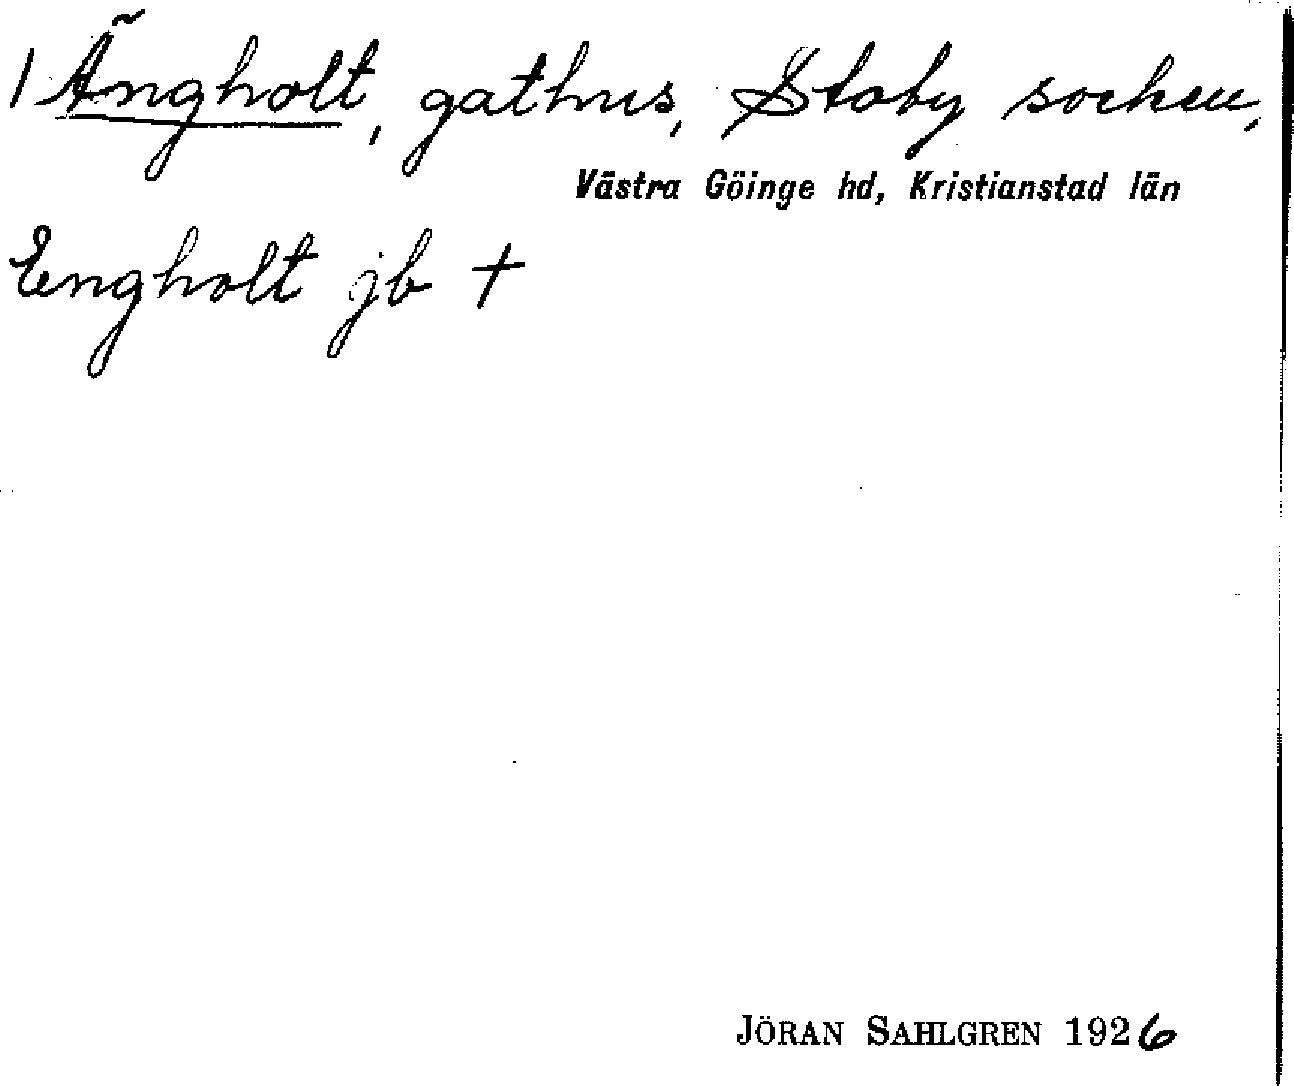 1 Ängholt, gathus, Stoby socken,
Västra Göinge hd, Kristianstad län
Engholt jb +
JÖRAN SAHLGREN 1926